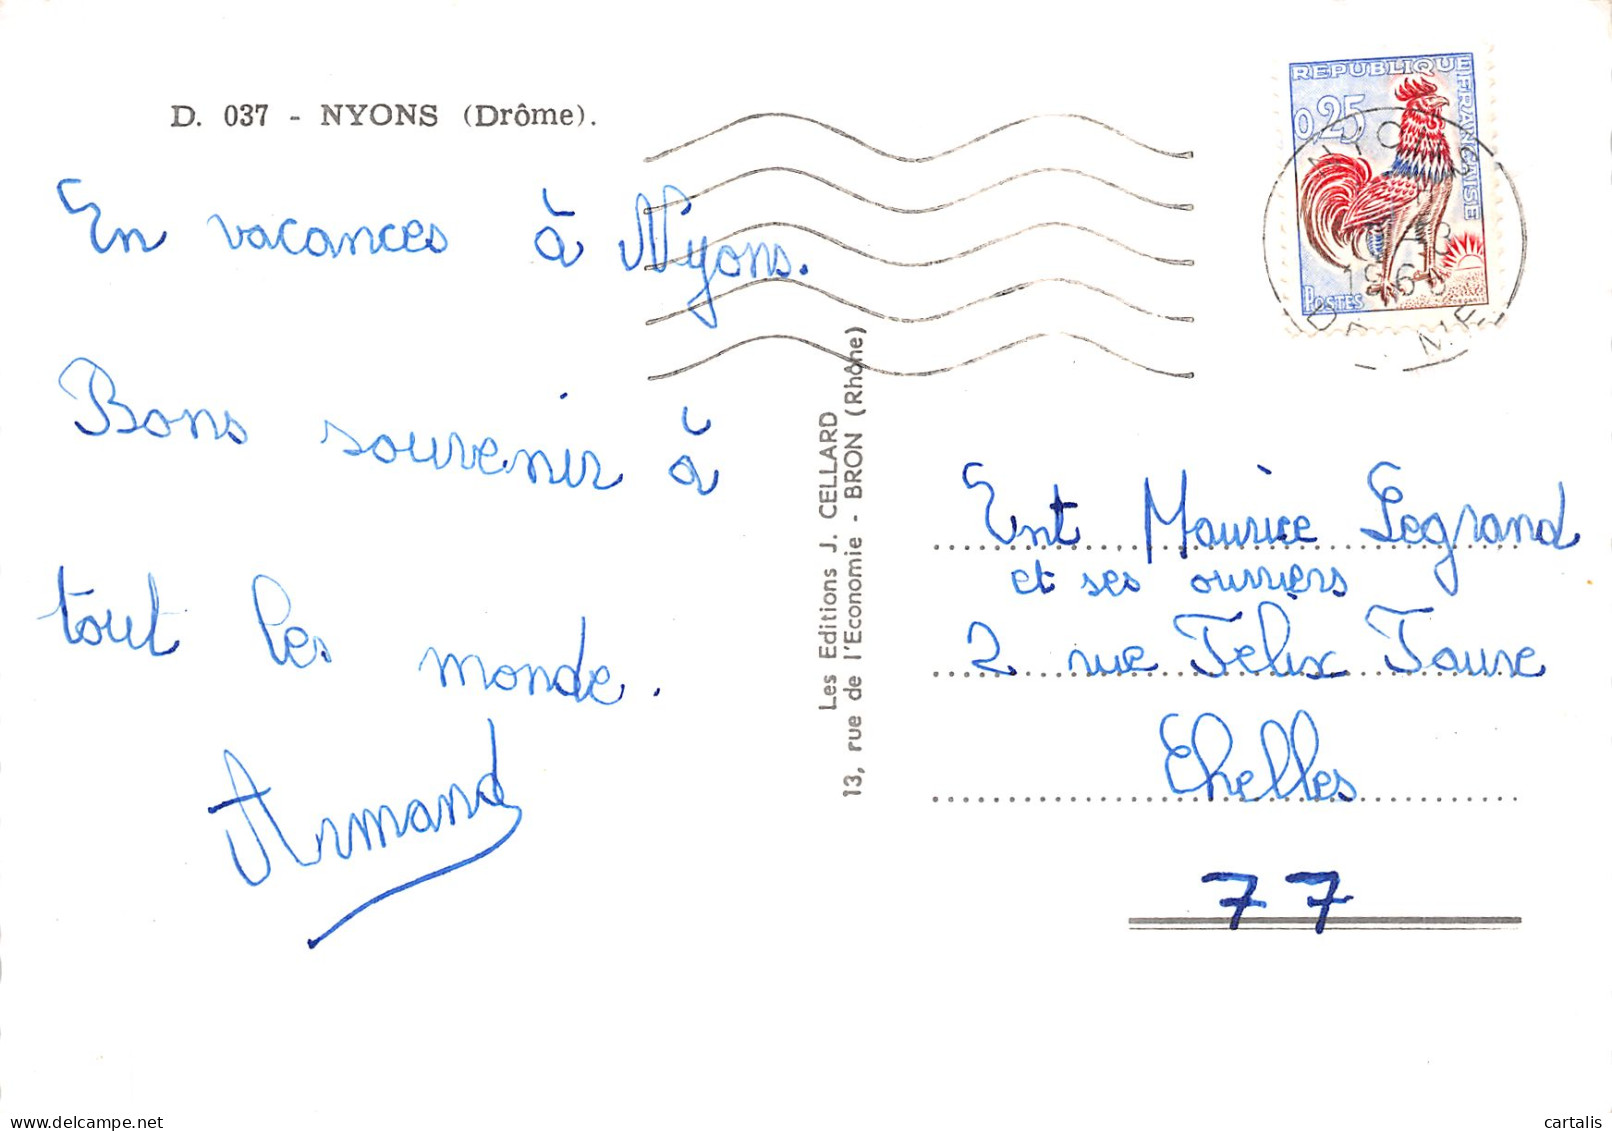 D. 037 - NYONS (Drôme).
En vacances à Nyons.
Bons souvenir à
tout les monde.
Armand
Les Editions J. CELLARD
13, rue de l'Economie - BRON (Rhône)
REPUBLIQUE FRANÇAISE
0,25
POSTES
Ent Maurice Legrand
et ses ouvriers
2 rue Felix Faure
Chelles
77
cartalis